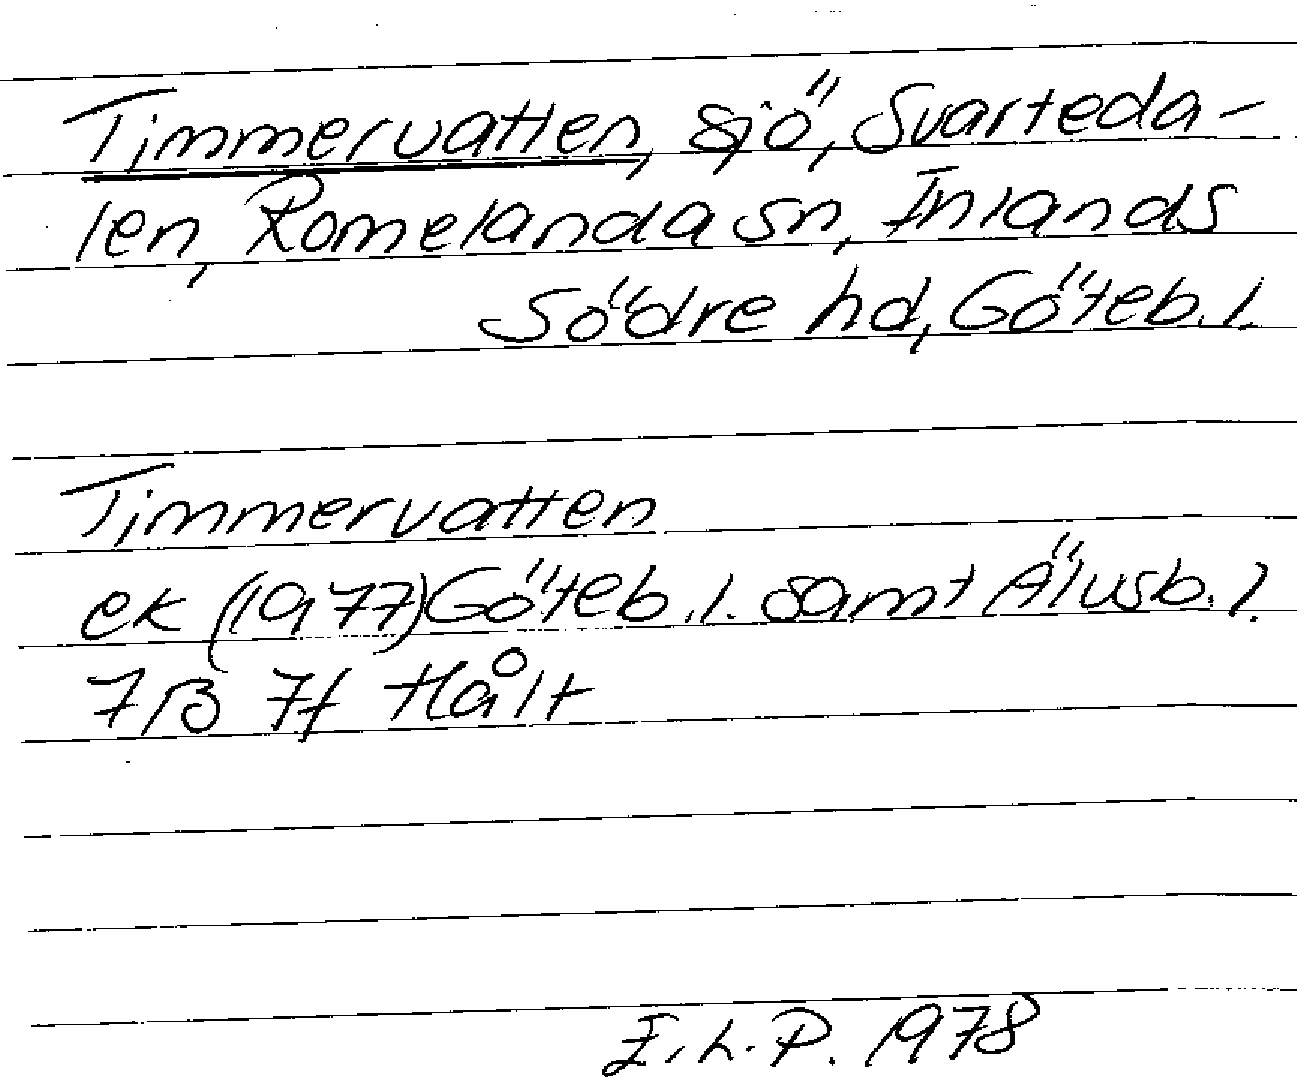 Timmervatten, sjö, Svarteda-
len, Romelanda sn, Inlands
Södre hd, Göteb. l.
Timmervatten
ek (1977) Göteb. l. samt Älvsb. l.
7B 7f Hålt
I. L. P. 1978